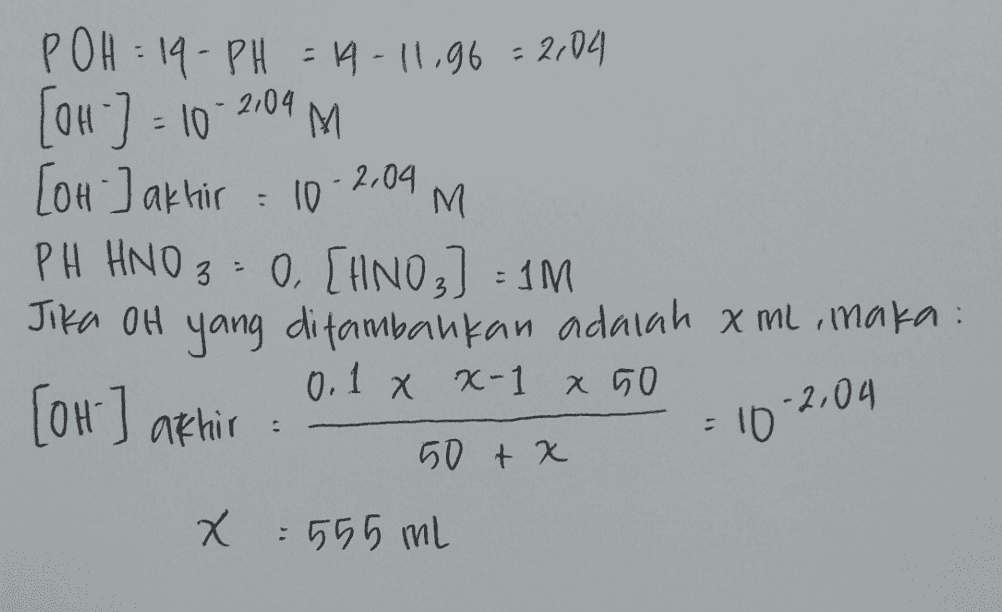 POH = 14 - PH = 14 - 11,96 = 2,04
[OH⁻] = 10⁻²,⁰⁴ M
[OH⁻] akhir = 10⁻²,⁰⁴ M
PH HNO₃ = 0, [HNO₃] = 1M
Jika OH yang ditambahkan adalah x mL, maka :
[OH⁻] akhir = 0.1 x x-1 x 50 / 50 + x = 10⁻²,⁰⁴
x = 555 mL